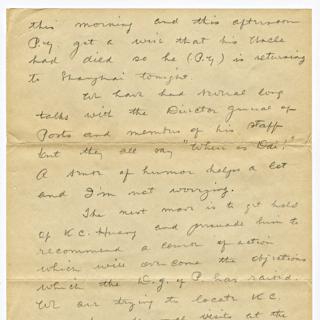 this morning and this afternoon
P.y. got a wire that his Uncle
had died so he (P.y.) is returning
to Shanghai tonight.
We have had several long
talks with the Director General of
Posts and members of his staff
but they all say "When is Ode!"
A sense of humor helps a lot
and I'm not worrying.
The next move is to get hold
of K.C. Huang and persuade him to
recommend a course of action
which will over come the objections
which the D.G. of P. has raised.
We are trying to locate K.C.
visits at the